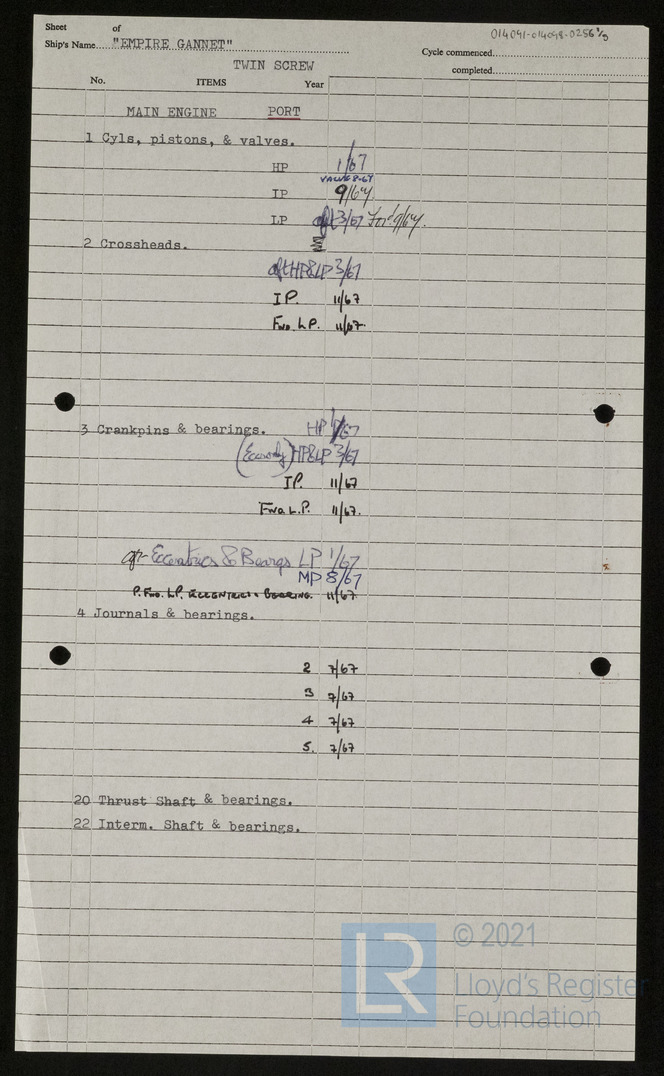 Sheet of
014091-014098-0256 1/3
Ship's Name...."EMPIRE GANNET"
Cycle commenced
TWIN SCREW
completed
No. ITEMS Year
MAIN ENGINE PORT
1 Cyls, pistons, & valves.
HP 1/67
VALVE 8-67
IP 9/64
LP aft 3/67 For'd 9/64.
2 Crossheads.
aft HP&LP 3/67
IP. 11/67
FWD. L.P. 11/67.
3 Crankpins & bearings. HP 1/67
HP&LP 3/67
IP. 11/67
FWD L.P. 11/67.
aft- Eccentrics & Bearngs LP 1/67
MP 8/67
P. FWD. LP. ECCENTRIC & BEARING. 11/67.
4 Journals & bearings.
2 7/67
3 7/67
4 7/67
5. 7/67
20 Thrust Shaft & bearings.
22 Interm. Shaft & bearings.
LR
© 2021
Lloyd's Register
Foundation